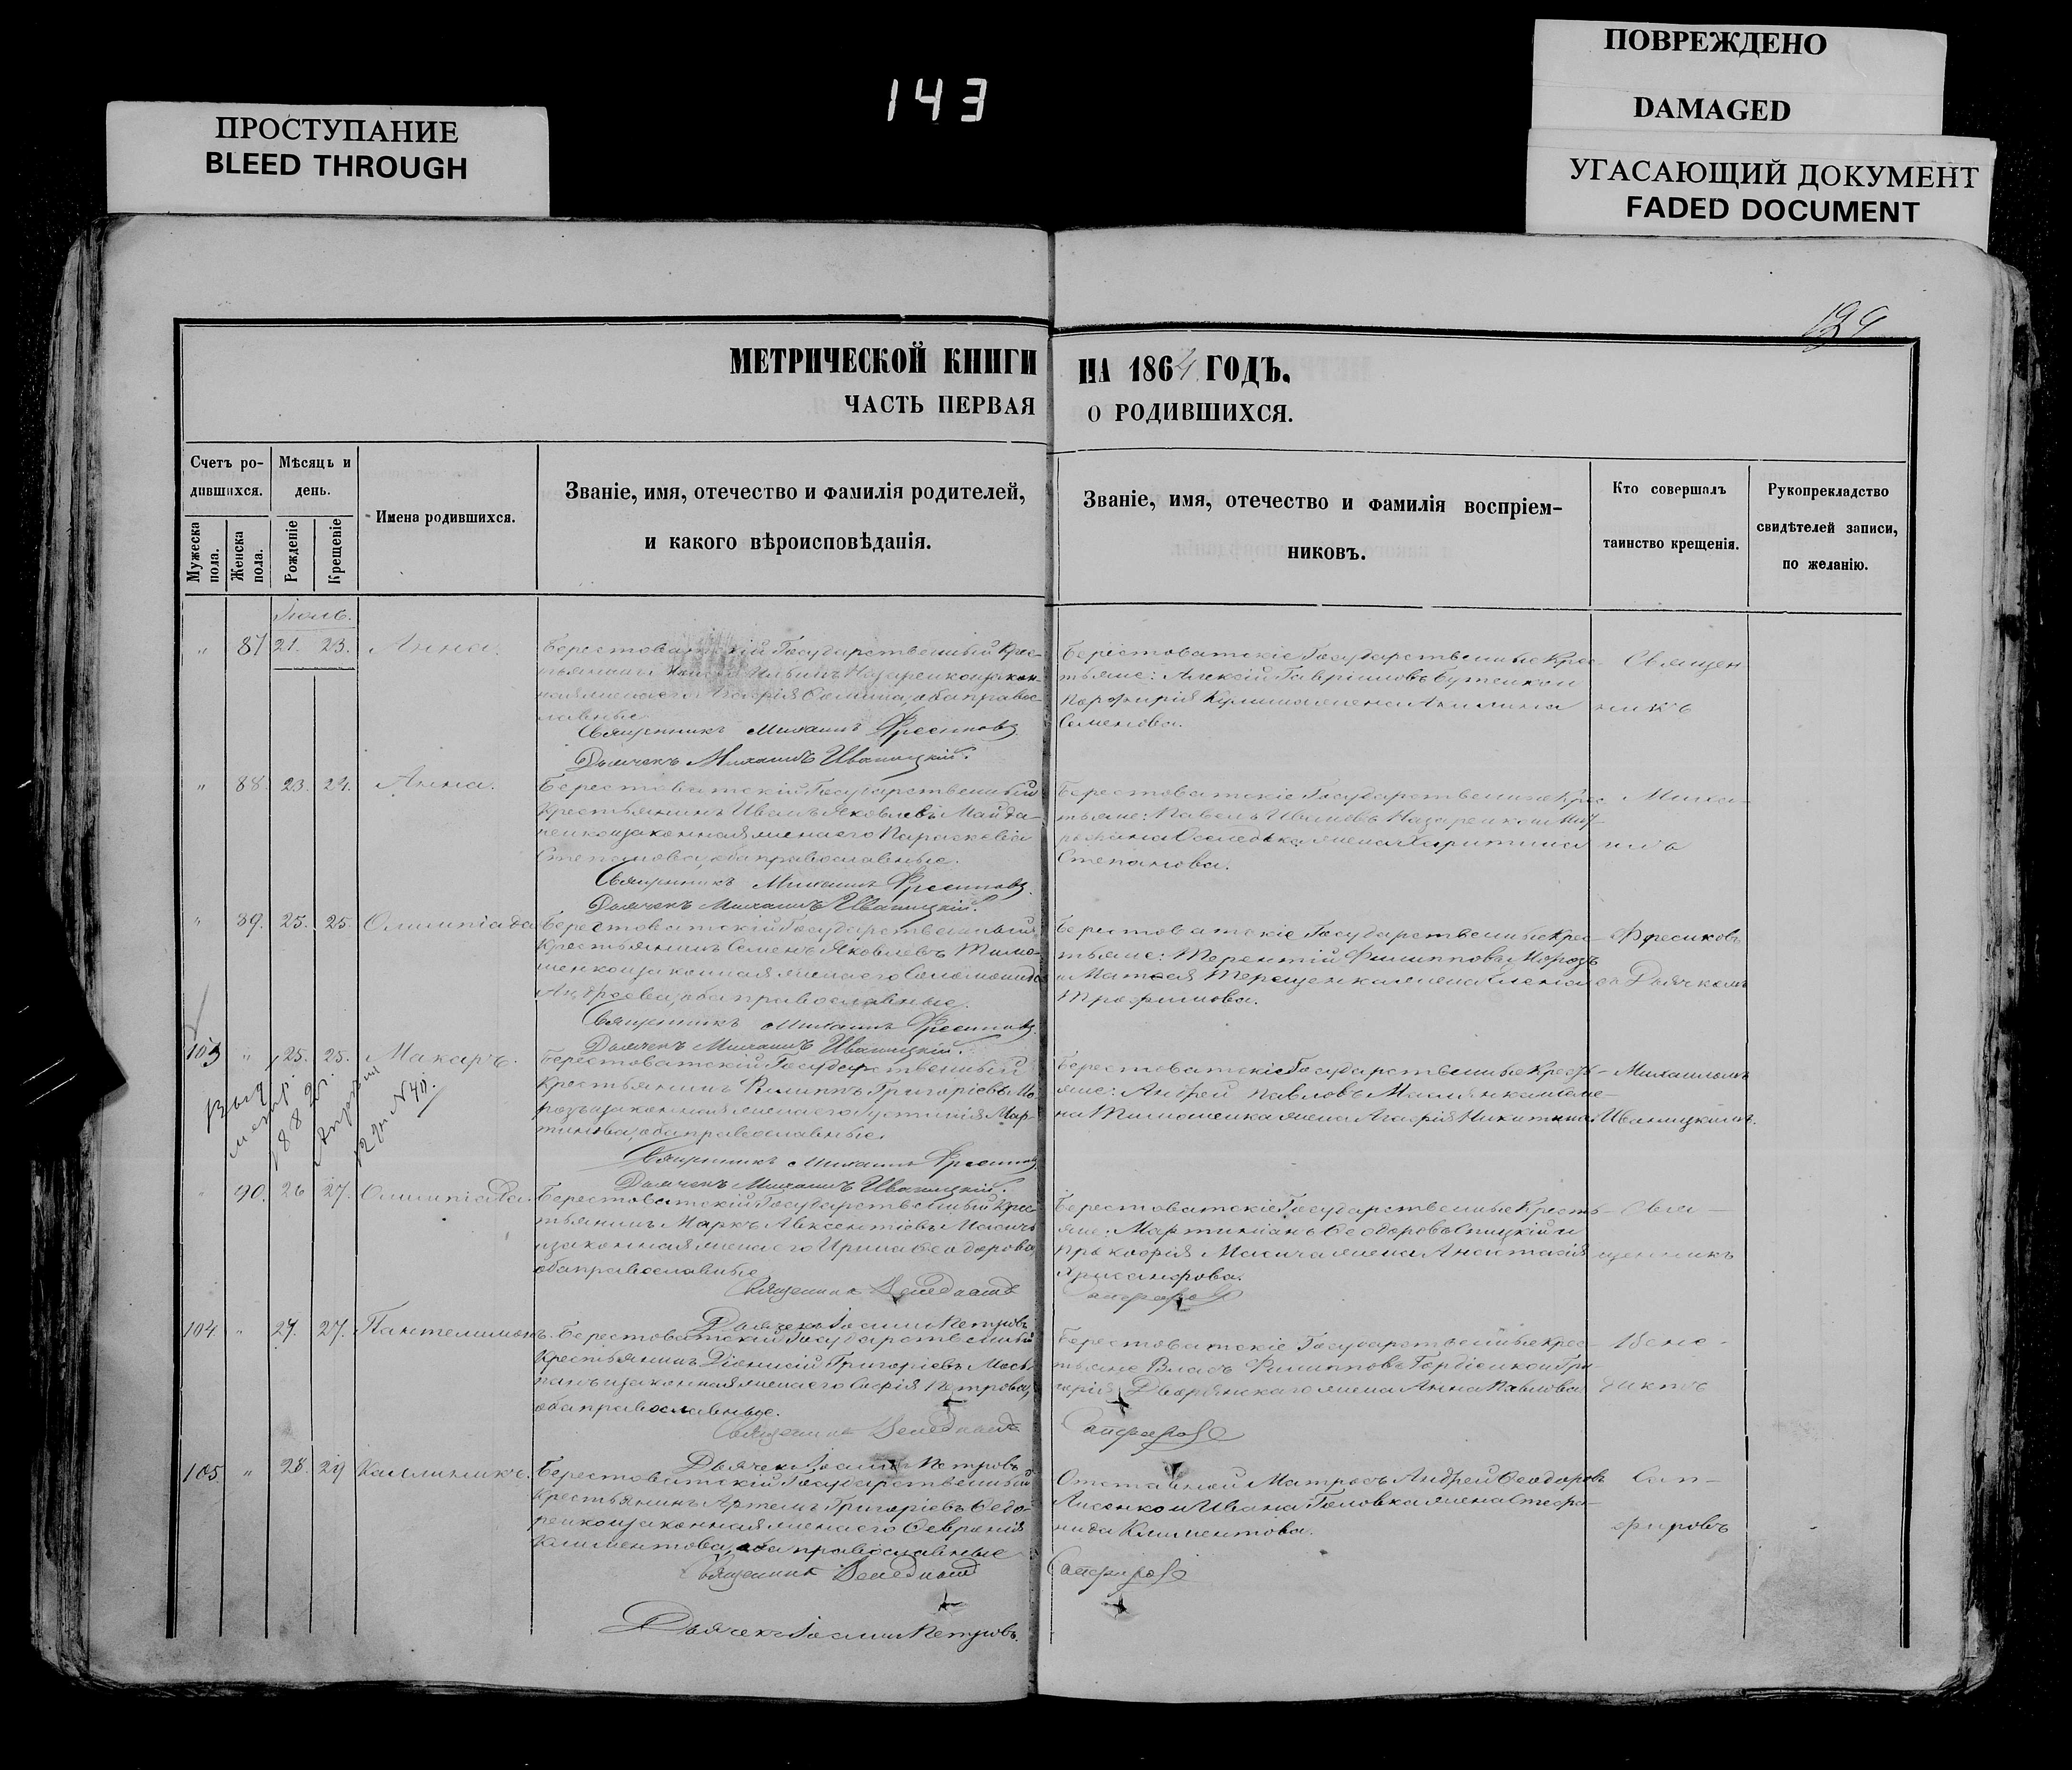 ПОВРЕЖДЕНО
DAMAGED
143
ПРОСТУПАНИЕ
BLEED THROUGH
УГАСАЮЩИЙ ДОКУМЕНТ
FADED DOCUMENT
129
МЕТРИЧЕСКОЙ КНИГИ НА 1864 ГОДЪ,
ЧАСТЬ ПЕРВАЯ О РОДИВШИХСЯ.
Счетъ ро-
дившихся.
Мужеска пола.
Женска пола.
Мѣсяцъ и
день.
Рожденіе
Крещеніе
Имена родившихся.
Званіе, имя, отечество и фамилія родителей,
и какого вѣроисповѣданія.
Званіе, имя, отечество и фамилія воспріем-
никовъ.
Кто совершалъ
таинство крещенія.
Рукоприкладство
свидѣтелей записи,
по желанію.
Іюль.
" 87 21. 23. Анна.
Государственный Крес-
законная
обаправос-
лавные
Священникъ Михаилъ
Дьячекъ Михаилъ Иваницкій.
Берестоватскіе Государственные Крес-
тьяне: Алексій Гавріиловъ Бутенко и
Порфирія Кулиша жена Акилина
Семенова.
Священ
никъ
" 88. 23. 24. Анна.
Берестоватскій Государственный
Крестьянинъ Иванъ Яковлевъ Майда-
ненко и законная жена его Параскевія
Степановa, оба православные.
Священникъ Михаилъ
Дьячекъ Михаилъ Иваницкій.
Берестоватскіе Государственные Крес-
тьяне: Павелъ Ивановъ Назаренко и
жена Харитина
Степанова.
Миха-
илъ
" 89. 25. 25. Олимпіада
Берестоватскій Государственный
Крестьянинъ Семенъ Яковлевъ Тимо-
шенко и законная жена его Соломонида
Андреева, оба православные.
Священникъ Михаилъ
Дьячекъ Михаилъ Иваницкій.
Берестоватскіе Государственные Крес-
тьяне: Терентій Филипповъ Морозъ
и Матвея Терещенка жена Елена
Трофимова.
съ Дьячкомъ
103 " 25. 25. Макаръ.
Выд.
метр.
188 г.
12 дн №40.
Берестоватскій Государственный
Крестьянинъ Филиппъ Григоріевъ Мо-
розъ и законная жена его Іустинія Мар-
тинова, оба православные.
Священникъ Михаилъ
Дьячекъ Михаилъ Иваницкій.
Берестоватскіе Государственные Кресть-
яне: Андрей Павловъ
Тимошенка жена Агафія Никитина
Михаиломъ
Иваницкимъ.
90. 26 27. Олимпіада.
Берестоватскій Государственный Крес-
тьянинъ Маркъ Авксентіевъ Масичъ
и законная жена его Ирина Ѳеодорова
оба православные
Священникъ Венедиктъ
Дьячекъ Іоаннъ Петровъ
Берестоватскіе Государственные Кресть-
яне: Мартиніанъ Ѳеодоровъ и
Прокофія Масича жена Анастасія
Хрисанфова.
Сапфировъ
Свя-
щенникъ
104 " 27. 27. Пантелимонъ.
Берестоватскій Государственный
Крестьянинъ Діонисій Григоріевъ
и законная жена его Софія Петрова,
оба православные.
Священникъ Венедиктъ
Дьячекъ Іоаннъ Петровъ
Берестоватскіе Государственные Крес-
тьяне Власъ Филипповъ Гордіенко и Гри-
горія Дворянскаго жена Анна Павлова
Сапфировъ
Вене-
диктъ
105. " 28. 29 Каллиникъ.
Берестоватскій Государственный
Крестьянинъ Артемъ Григоріевъ Ѳедо-
ренко и законная жена его Ѳевронія
Климентова, оба православные
Священникъ Венедиктъ
Дьячекъ Іоаннъ Петровъ.
Отставной Матросъ Андрей Ѳеодоровъ
Лисенко и Ивана Головка жена Стефа-
нида Климентова.
Сапфировъ
Сап-
фировъ